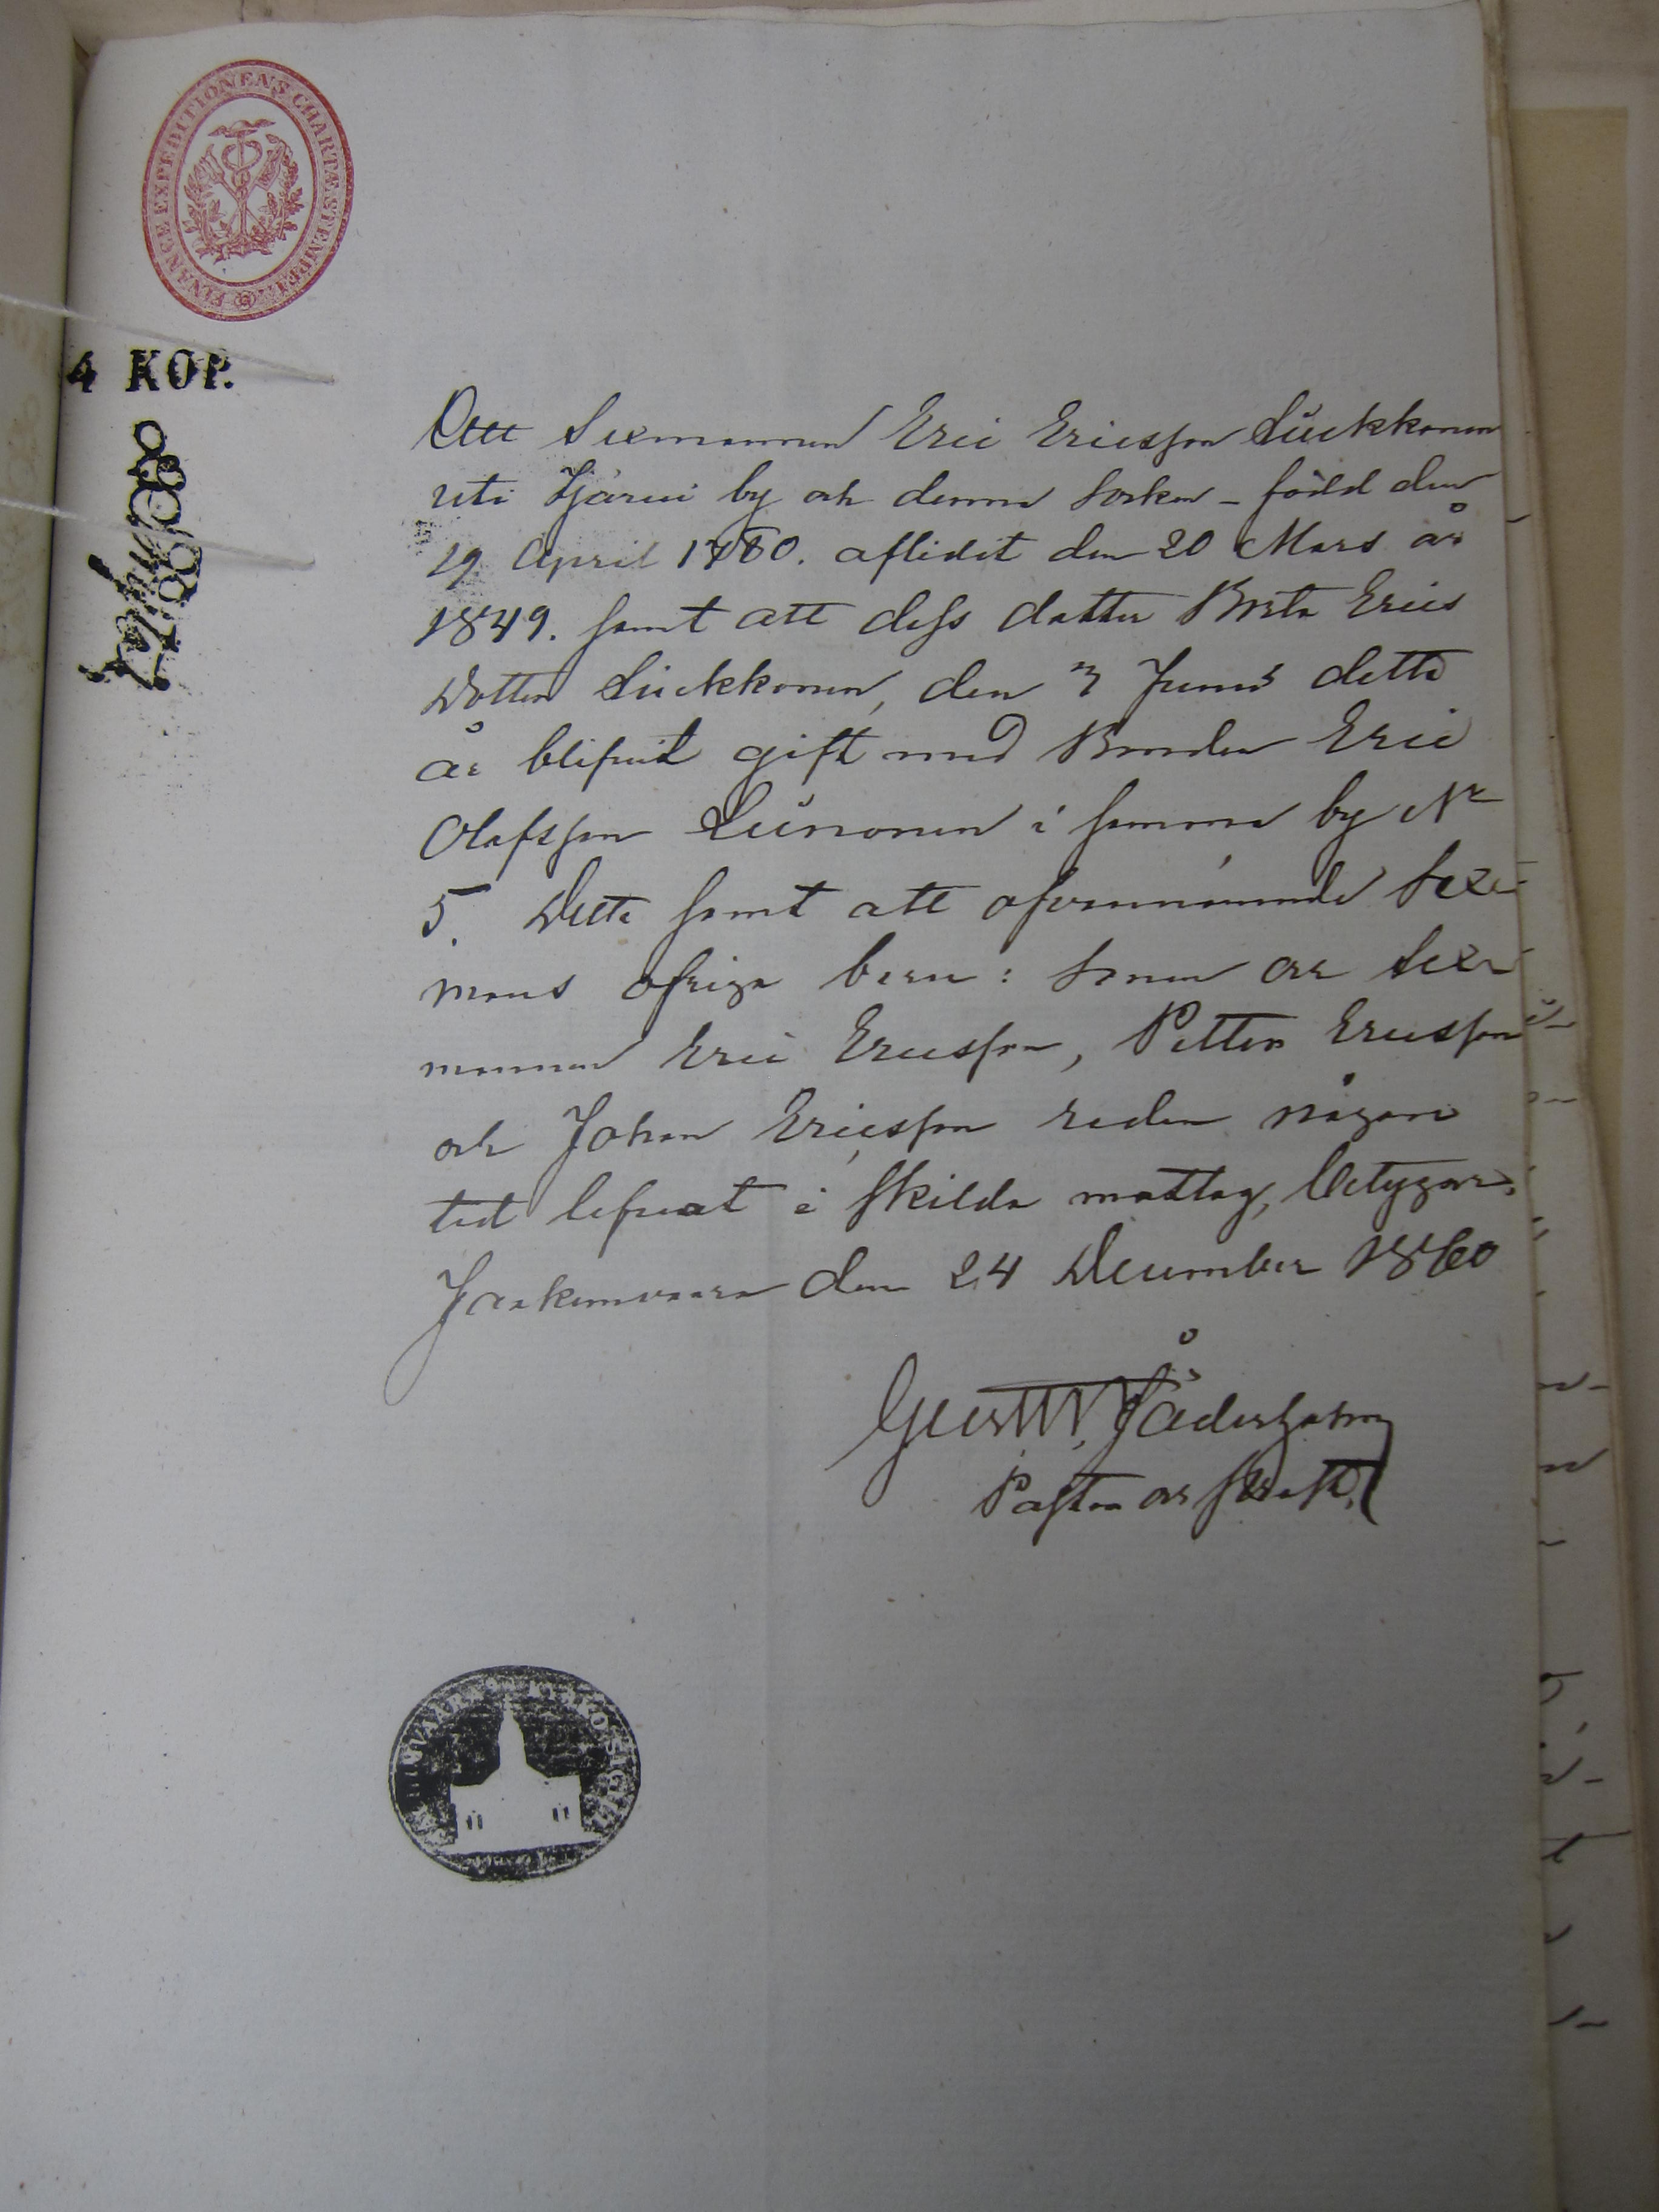 FINANCE EXPEDITIONENS CHARTÆ STEMPEL
4 KOP.
Att Sexmannen Eric Ericsson Siukkonen
uti Hjärui by och denna Socken – född den
19 April 1780. aflidit den 20 Mars år
1849. samt att dess dotter Brita Erics
Dotter Siukkonen, den 3 Junii detta
år blifvit gift med Bonden Eric
Olafsson Sinnonen i samma by Nr
5. Detta samt att ofvannämnde Sex-
mans öfriga barn: Sonen or Sex-
mannen Eric Ericsson, Petter Ericsson
och Johan Ericsson redan någon
tid lefvat i skilda matlag, betygar.
Jaakimvaara den 24 December 1860
Gust. W. Jäderholm
Pastor
KIRKO SIGILL